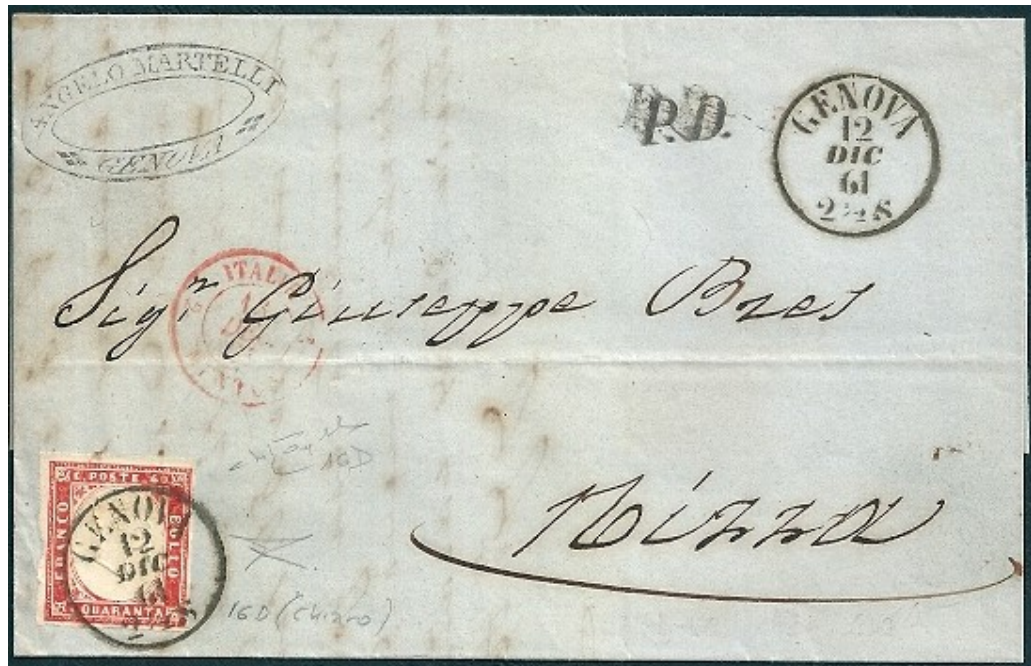 ANGELO MARTELLI
GENOVA
P.D.
GENOVA
12
DIC
61
2½S
ITALIE
Sigr. Giuseppe Bres
16D
Nizza
C. POSTE 40
FRANCO
BOLLO
QUARANTA
GENOVA
12
DIC
61
2½S
16D (Chiaro)